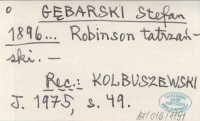 o GĘBARSKI Stefan
1896... Robinson tatrzań-
ski. —
Rec.: KOLBUSZEWSKI
J. 1975, s. 49.